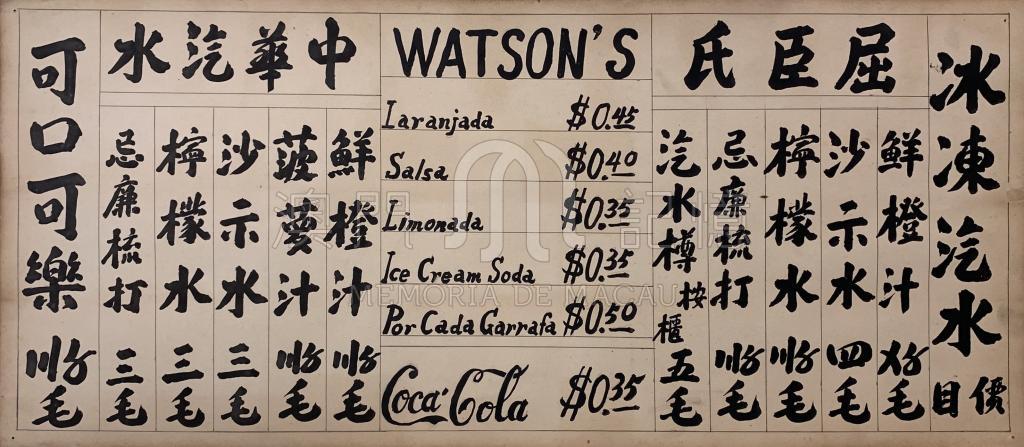 冰凍汽水 價目
屈臣氏
鮮橙汁 〤〥毛
沙示水 四毛
檸檬水 〣〥毛
忌廉梳打 〣〥毛
汽水樽按櫃五毛
WATSON'S
Laranjada $0.45
Salsa $0.40
Limonada $0.35
Ice Cream Soda $0.35
Por Cada Garrafa $0.50
Coca-Cola $0.35
中華汽水
鮮橙汁 〣〥毛
菠蘿汁 〣〥毛
沙示水 三毛
檸檬水 三毛
忌廉梳打 三毛
可口可樂 〣〥毛
澳門記憶
MEMÓRIA DE MACAU